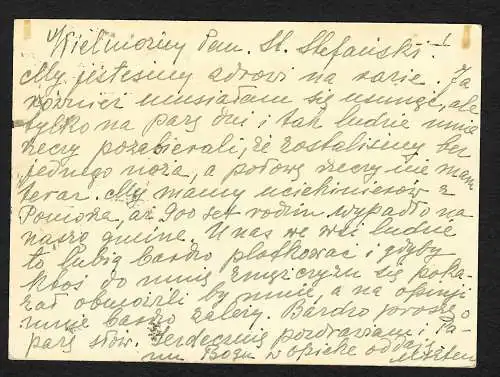 Wielmożny Pan. St. Stefański!
My jesteśmy zdrowi na razie. Ja
również musiałam się usunąć, ale
tylko na parę dni i tak ludzie mnie
rzeczy pozabierali, że zostaliśmy bez
jednego noża, a połowę rzeczy nie mam
teraz. My mamy uciekinierów z
Pomorza, aż 900 set rodzin wypadło na
naszą gminę. U nas we wsi ludzie
to lubią bardzo plotkować i gdyby
ktoś do mnie z mężczyzn się poka-
zał obmówili by mnie, a na opinji
mnie bardzo zależy. Bardzo proszę o
parę słów. Serdecznie pozdrawiam i Pa-
nu Bogu w opiekę oddaję